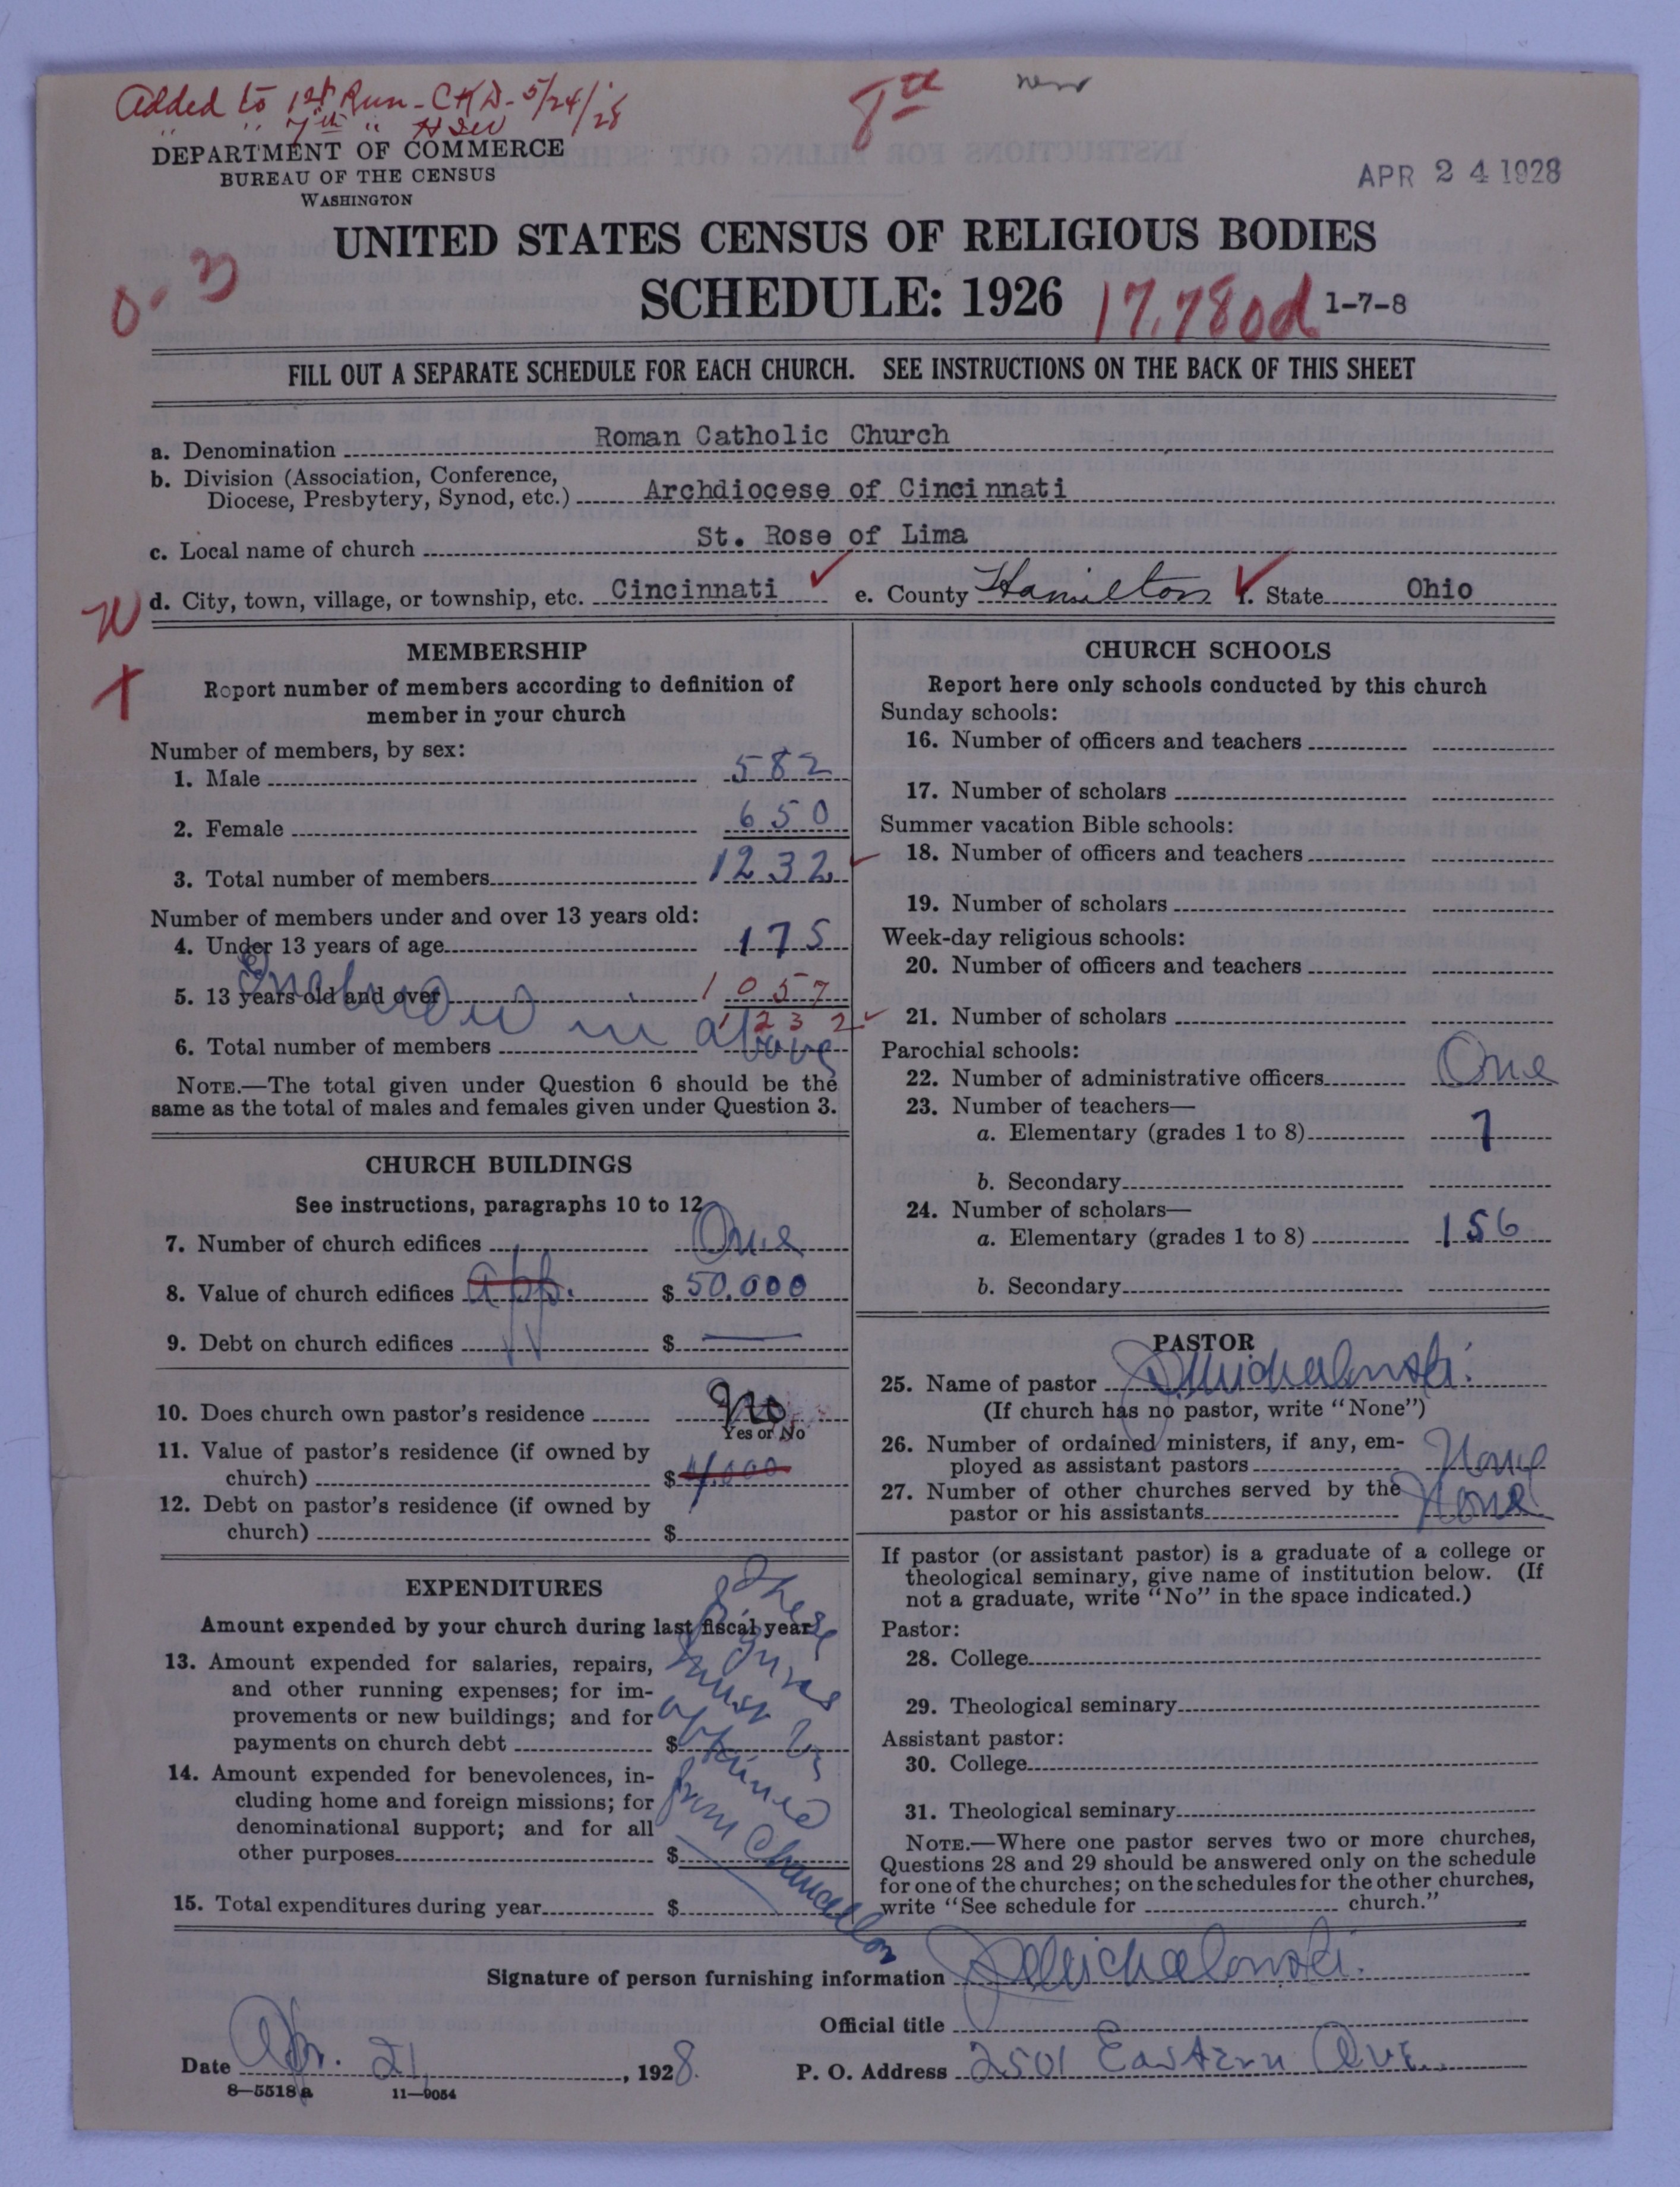 Added to 1st Run - CHD - 5/24/28
" " 7th " HSW
8th
new
DEPARTMENT OF COMMERCE
BUREAU OF THE CENSUS
WASHINGTON
APR 24 1928
UNITED STATES CENSUS OF RELIGIOUS BODIES
SCHEDULE: 1926
17,780d
1-7-8
FILL OUT A SEPARATE SCHEDULE FOR EACH CHURCH. SEE INSTRUCTIONS ON THE BACK OF THIS SHEET
a. Denomination Roman Catholic Church
b. Division (Association, Conference,
Diocese, Presbytery, Synod, etc.) Archdiocese of Cincinnati
c. Local name of church St. Rose of Lima
d. City, town, village, or township, etc. Cincinnati e. County Hamilton f. State Ohio
MEMBERSHIP
Report number of members according to definition of
member in your church
Number of members, by sex:
1. Male 582
2. Female 650
3. Total number of members 1232
Number of members under and over 13 years old:
4. Under 13 years of age 175
5. 13 years old and over 1057
1232
6. Total number of members
Included in above
NOTE.—The total given under Question 6 should be the
same as the total of males and females given under Question 3.
CHURCH BUILDINGS
See instructions, paragraphs 10 to 12
7. Number of church edifices One
8. Value of church edifices app. $ 50.000
9. Debt on church edifices $ —
10. Does church own pastor's residence No
Yes or No
11. Value of pastor's residence (if owned by
church) $ 4,000
12. Debt on pastor's residence (if owned by
church) $
EXPENDITURES
Amount expended by your church during last fiscal year
13. Amount expended for salaries, repairs,
and other running expenses; for im-
provements or new buildings; and for
payments on church debt $
14. Amount expended for benevolences, in-
cluding home and foreign missions; for
denominational support; and for all
other purposes $
15. Total expenditures during year $
These
figures
must be
obtained
from Chancellor
CHURCH SCHOOLS
Report here only schools conducted by this church
Sunday schools:
16. Number of officers and teachers
17. Number of scholars
Summer vacation Bible schools:
18. Number of officers and teachers
19. Number of scholars
Week-day religious schools:
20. Number of officers and teachers
21. Number of scholars
Parochial schools:
22. Number of administrative officers One
23. Number of teachers—
a. Elementary (grades 1 to 8) 7
b. Secondary
24. Number of scholars—
a. Elementary (grades 1 to 8) 156
b. Secondary
PASTOR
25. Name of pastor Michalowski
(If church has no pastor, write "None")
26. Number of ordained ministers, if any, em-
ployed as assistant pastors None
27. Number of other churches served by the
pastor or his assistants None
If pastor (or assistant pastor) is a graduate of a college or
theological seminary, give name of institution below. (If
not a graduate, write "No" in the space indicated.)
Pastor:
28. College
29. Theological seminary
Assistant pastor:
30. College
31. Theological seminary
NOTE.—Where one pastor serves two or more churches,
Questions 28 and 29 should be answered only on the schedule
for one of the churches; on the schedules for the other churches,
write "See schedule for church."
Signature of person furnishing information Michalowski.
Official title
Date Apr. 21, 1928. P. O. Address 2501 Eastern Ave.
8—5518a 11—9054